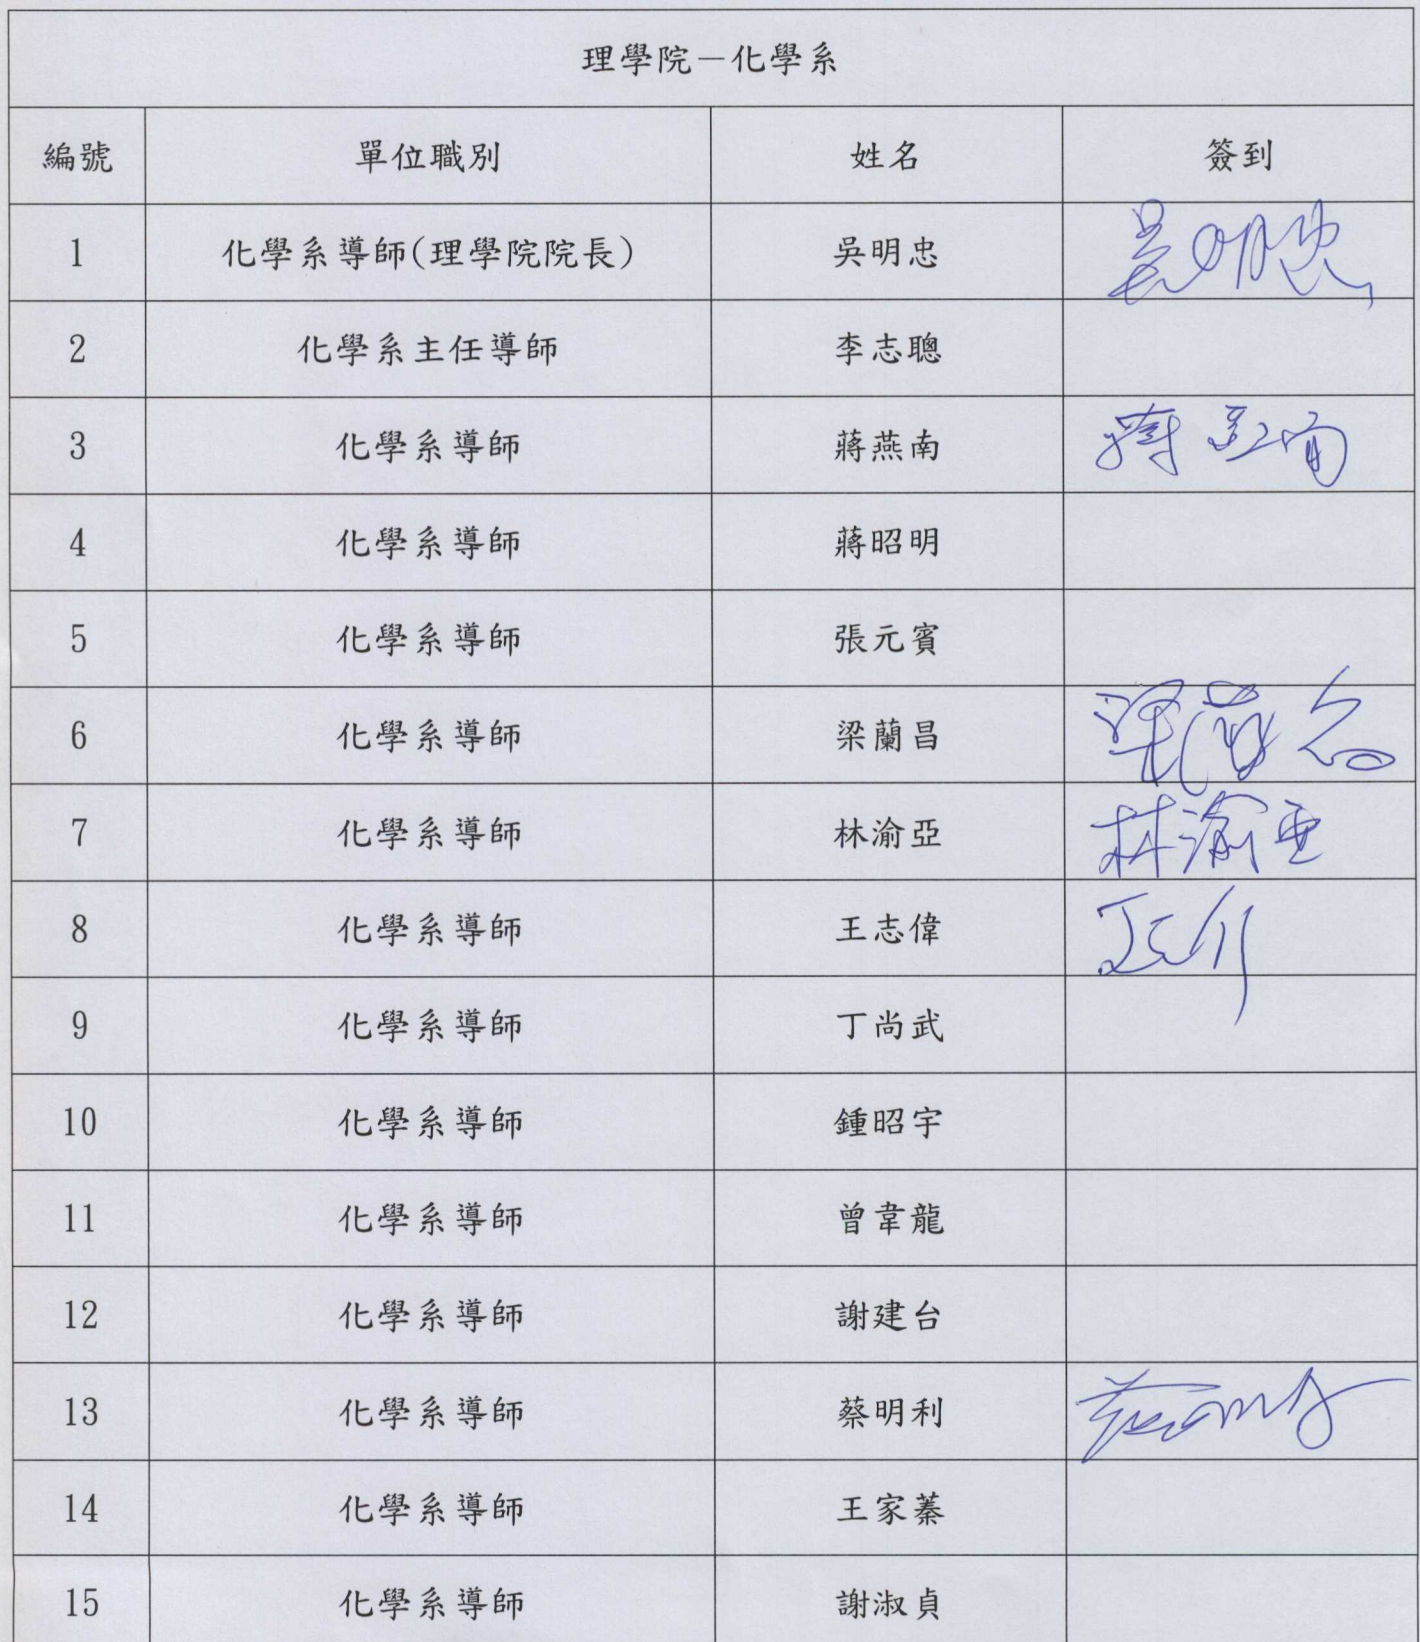 理學院－化學系
編號 單位職別 姓名 簽到
1 化學系導師(理學院院長) 吳明忠 吳明忠
2 化學系主任導師 李志聰
3 化學系導師 蔣燕南 蔣燕南
4 化學系導師 蔣昭明
5 化學系導師 張元賓
6 化學系導師 梁蘭昌 梁蘭昌
7 化學系導師 林渝亞 林渝亞
8 化學系導師 王志偉
9 化學系導師 丁尚武
10 化學系導師 鍾昭宇
11 化學系導師 曾韋龍
12 化學系導師 謝建台
13 化學系導師 蔡明利 蔡明利
14 化學系導師 王家蓁
15 化學系導師 謝淑貞